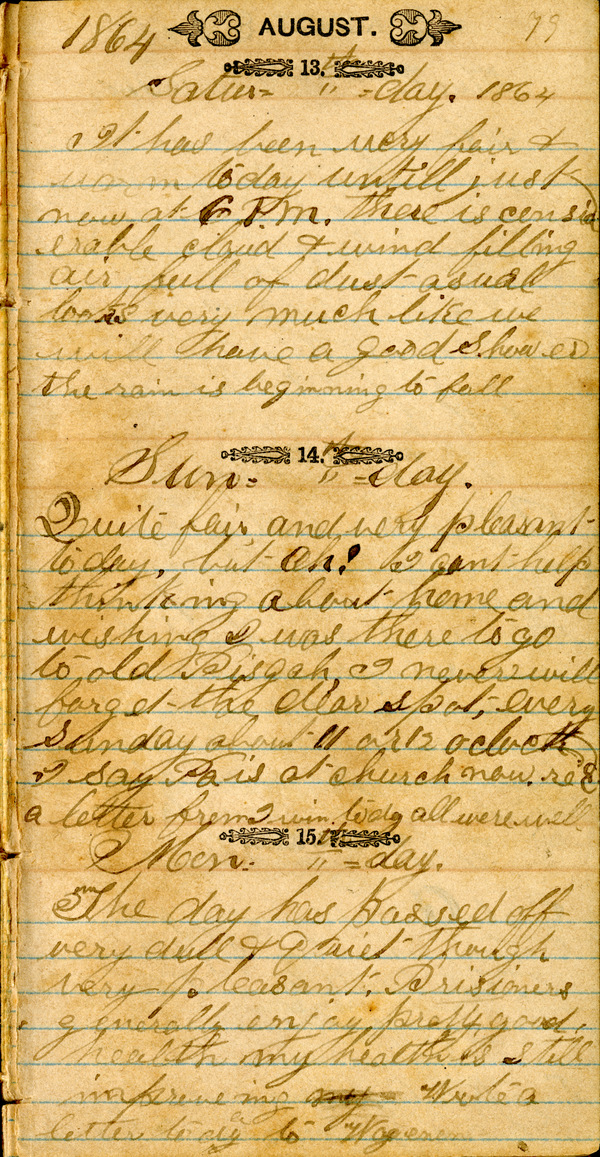 1864 AUGUST. 79
13.th
Satur= " =day. 1864
It has been very fair &
warm today untill just
now at 6 P m. there is consid
erable cloud & wind filling
air full of dust as usual
looks very much like we
will have a good shower
the rain is beginning to fall
14.th
Sun= " =day.
Quite fair and very pleasant
today, but oh! I cant help
thinking about home and
wishing I was there to go
to old Pisgah, I never will
forget the dear spot, every
Sunday about 11 or 12 oclock
I say Pa is at church now. re'd
a letter from today all were well
15.th
Mon= " =day.
The day has passed off
very dull & Quiet though
very pleasant. Prisioners
generally enjoy pretty good
health my health is still
improveing Wrote a
letter today to